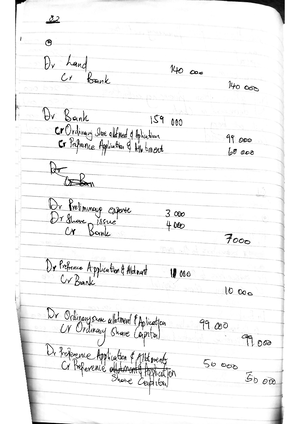 Q2
a
Dr Land 140 000
Cr Bank 140 000
Dr Bank 159 000
Cr Ordinary share allotment & Application 99 000
Cr Prefrence Application & Allotment 60 000
Dr
Cr Ban
Dr Preliminary expense 3 000
Dr Share issue 4 000
Cr Bank 7000
Dr Prefrence Application & Allotment 10 000
Cr Bank 10 000
Dr Ordinary share allotment & Application 99 000
Cr Ordinary Share Capital 99 000
Dr Preference Application & Allotment 50 000
Cr Preference Application 50 000
Share Capital